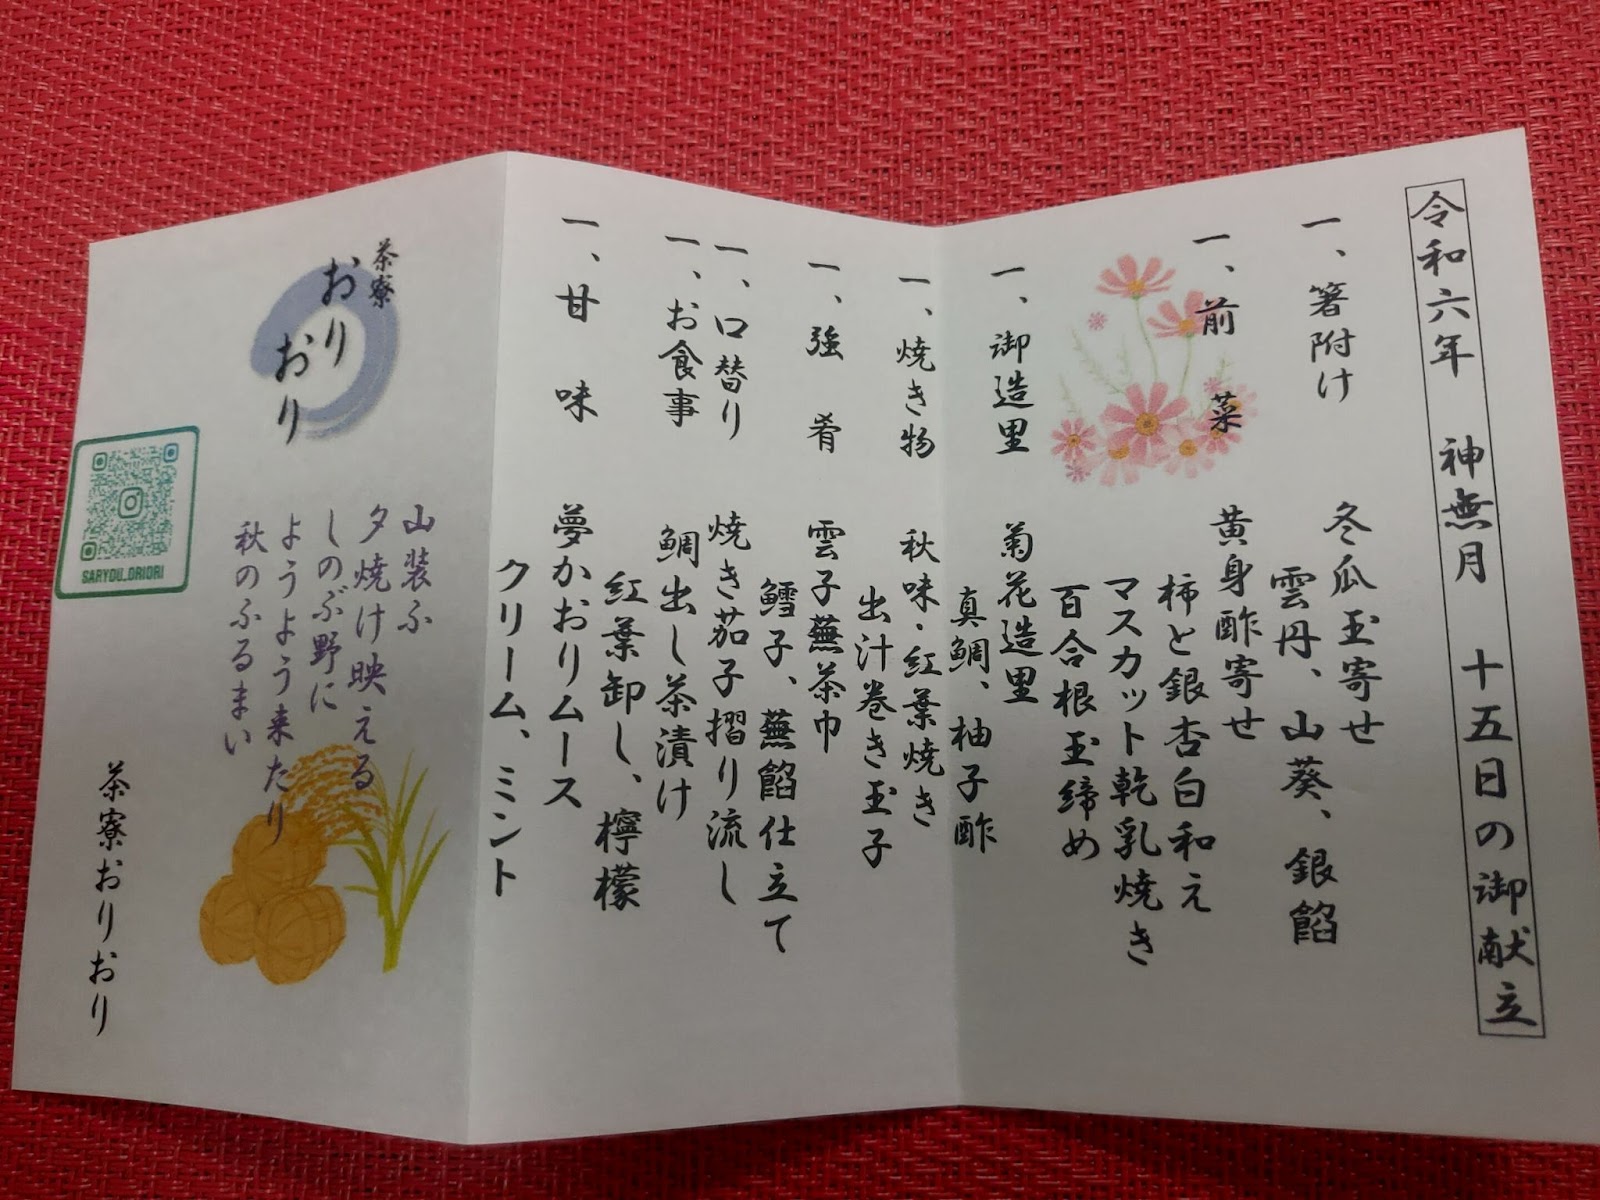 令和六年 神無月 十五日の御献立
一、箸附け 冬瓜玉寄せ
雲丹、山葵、銀餡
一、前菜 黄身酢寄せ
柿と銀杏白和え
マスカット乾乳焼き
百合根玉締め
一、御造里 菊花造里
真鯛、柚子酢
一、焼き物 秋味・紅葉焼き
出汁巻き玉子
一、強肴 雲子蕪茶巾
鱈子、蕪餡仕立て
一、口替り 焼き茄子摺り流し
一、お食事 鯛出し茶漬け
紅葉卸し、檸檬
一、甘味 夢かおりムース
クリーム、ミント
茶寮
おり
おり
山装ふ
夕焼け映える
しのぶ野に
ようよう来たり
秋のふるまい
茶寮おりおり
SARYOU_ORIORI